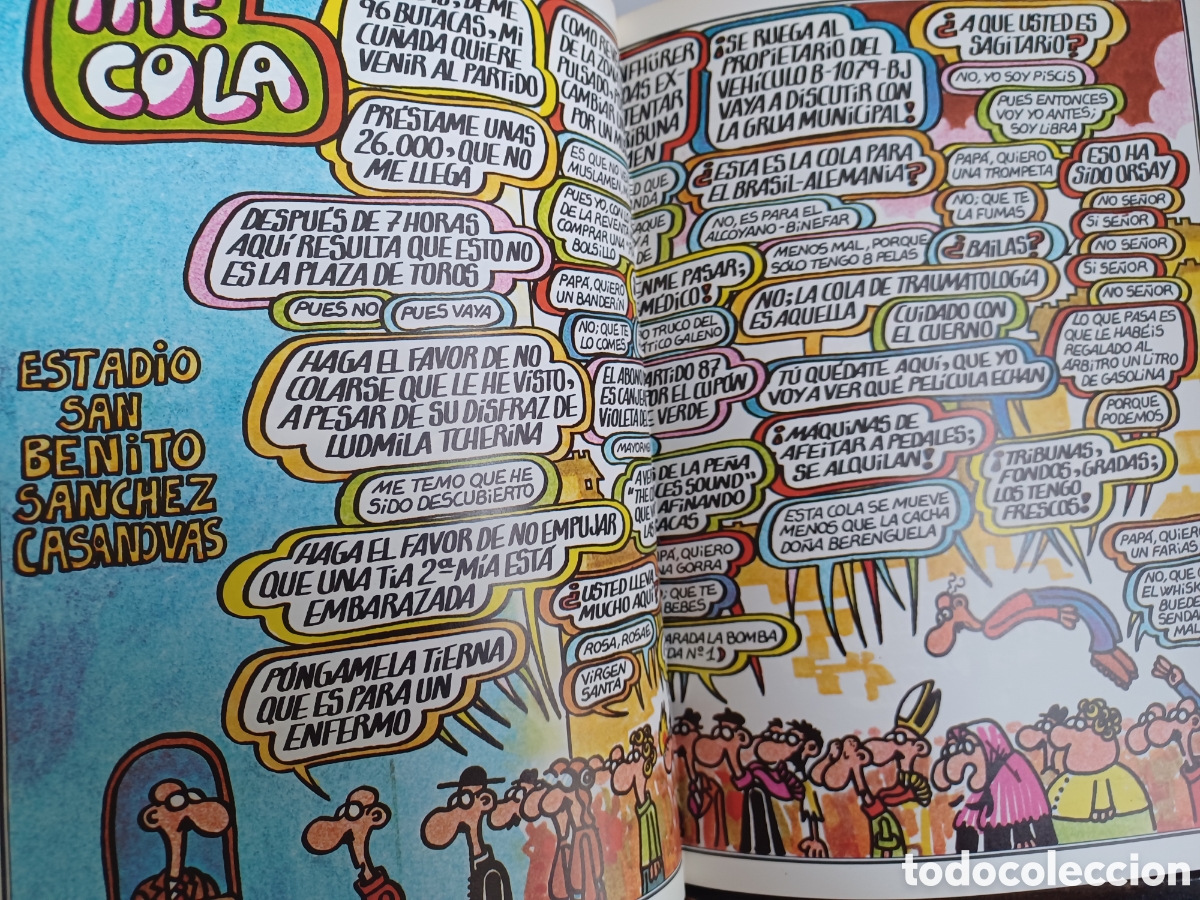 THE
COLA
DEME
96 BUTACAS, MI
CUÑADA QUIERE
VENIR AL PARTIDO
PRÉSTAME UNAS
26.000, QUE NO
ME LLEGA
DESPUÉS DE 7 HORAS
AQUÍ RESULTA QUE ESTO NO
ES LA PLAZA DE TOROS
PUES NO
PUES VAYA
ESTADIO
SAN
BENITO
SANCHEZ
CASANOVAS
HAGA EL FAVOR DE NO
COLARSE QUE LE HE VISTO,
A PESAR DE SU DISFRAZ DE
LUDMILA TCHERINA
ME TEMO QUE HE
SIDO DESCUBIERTO
HAGA EL FAVOR DE NO EMPUJAR
QUE UNA TIA 2ª MÍA ESTÁ
EMBARAZADA
PÓNGAMELA TIERNA
QUE ES PARA UN
ENFERMO
COMO
DE LA
PULSADO
CAMBIAR
POR UN
ES QUE NO
PUES YO, CON
DE LA REVENTA
COMPRAR UNA
BOLSILLO
PAPÁ, QUIERO
UN BANDERIN
NO; QUE TE
LO COMES
EL ABONO
ES CANJE
VIOLETA DE
¿USTED LLEVA
MUCHO AQUÍ
ROSA, ROSAE
VIRGEN
SANTA
TRIBUNA
ENME PASAR;
MEDICO!
TRUCO DEL
GALENO
PARTIDO 87
POR EL CUPÓN
VERDE
DE LA PEÑA
SOUND"
AFINANDO
QUIERO
GORRA
QUE TE
BEBES
LA BOMBA
Nº 1
¡SE RUEGA AL
PROPIETARIO DEL
VEHÍCULO B-1079-BJ
VAYA A DISCUTIR CON
LA GRUA MUNICIPAL!
¿ESTA ES LA COLA PARA
EL BRASIL-ALEMANIA?
NO, ES PARA EL
ALCOYANO-BINEFAR
MENOS MAL, PORQUE
SÓLO TENGO 8 PELAS
NO; LA COLA DE TRAUMATOLOGÍA
ES AQUELLA
CUIDADO CON
EL CUERNO
TÚ QUÉDATE AQUÍ, QUE YO
VOY A VER QUÉ PELÍCULA ECHAN
¡MÁQUINAS DE
AFEITAR A PEDALES;
SE ALQUILAN!
ESTA COLA SE MUEVE
MENOS QUE LA CACHA
DOÑA BERENGUELA
¿A QUE USTED ES
SAGITARIO?
NO, YO SOY PISCIS
PUES ENTONCES
VOY YO ANTES;
SOY LIBRA
PAPÁ, QUIERO
UNA TROMPETA
NO; QUE TE
LA FUMAS
¿BAILAS?
ESO HA
SIDO ORSAY
NO SEÑOR
SI SEÑOR
NO SEÑOR
SI SEÑOR
NO SEÑOR
LO QUE PASA ES
QUE LE HABÉIS
REGALADO AL
ARBITRO UN LITRO
DE GASOLINA
PORQUE
PODEMOS
¡TRIBUNAS,
FONDOS, GRADAS;
LOS TENGO
FRESCOS!
PAPÁ, QUIERO
UN FARIAS
NO, QUE
EL WHISK
PUEDE
SENDA
MAL
todocoleccion